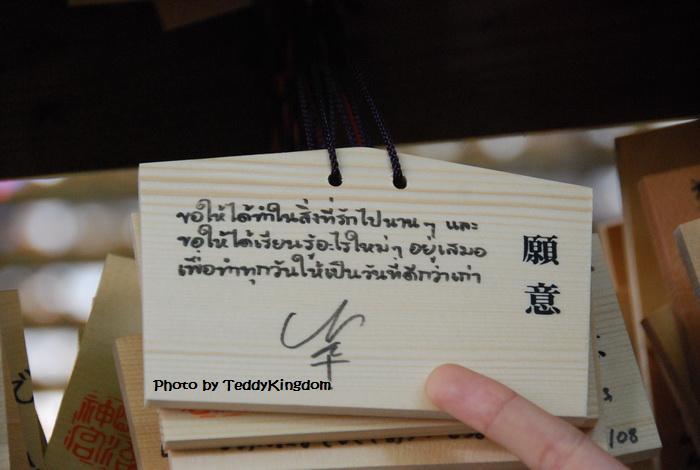 ขอให้ได้ทำในสิ่งที่รักไปนานๆ และ
ขอให้ได้เรียนรู้อะไรใหม่ๆ อยู่เสมอ
เพื่อทำทุกวันให้เป็นวันที่ดีกว่าเก่า
願意
Photo by TeddyKingdom
108